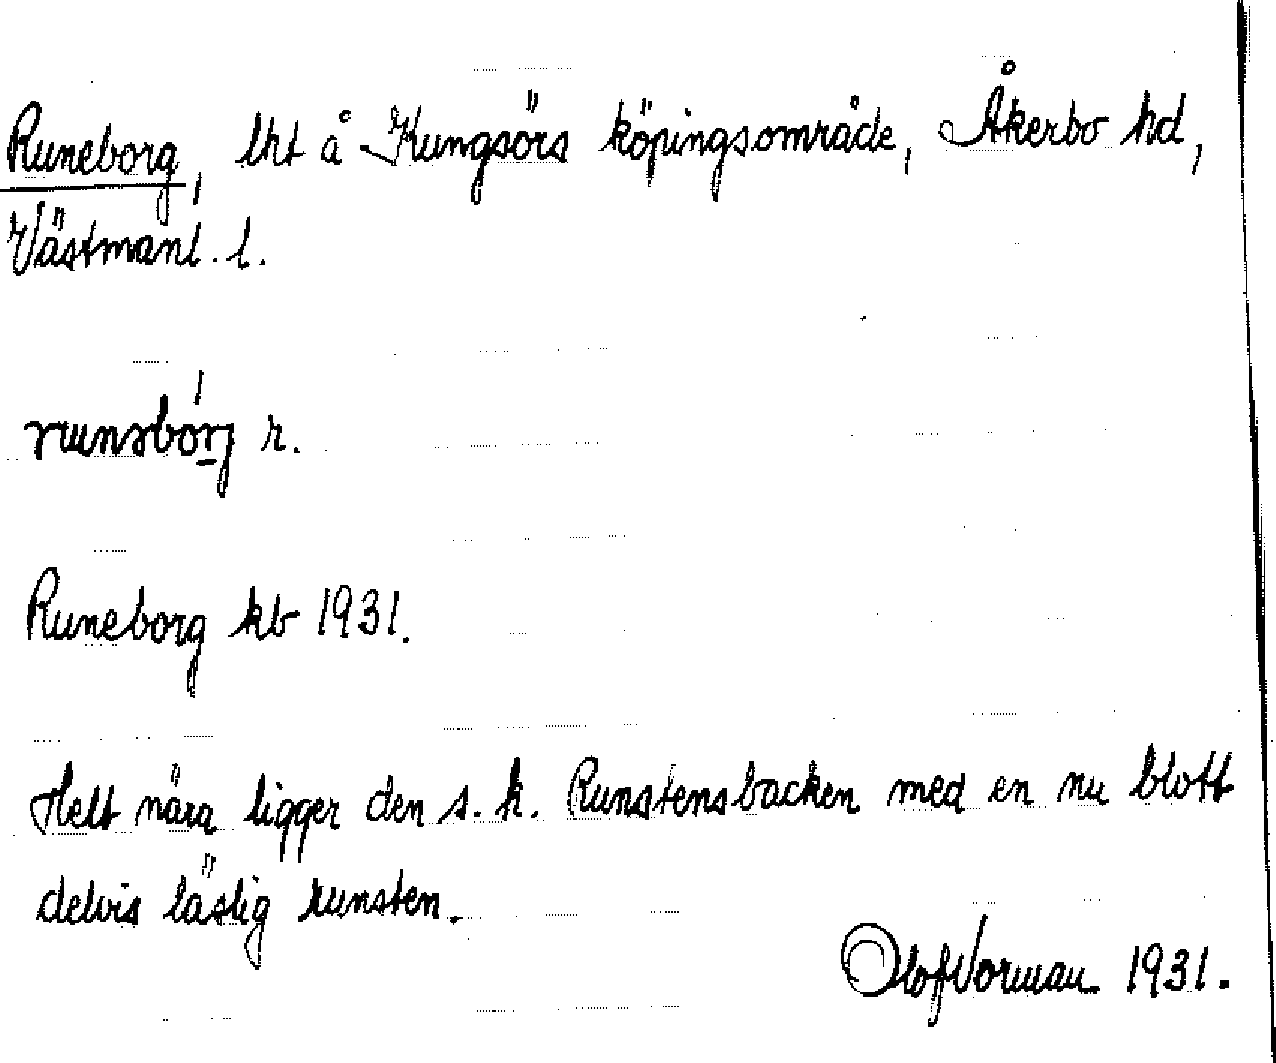 Runeborg, lht å Kungsörs köpingsområde, Åkerbo hd,
Västmanl. l.
runsbórj r.
Runeborg kb 1931.
Helt nära ligger den s. k. Runstensbacken med en nu blott
delvis läslig runsten.
Olof Vorman 1931.